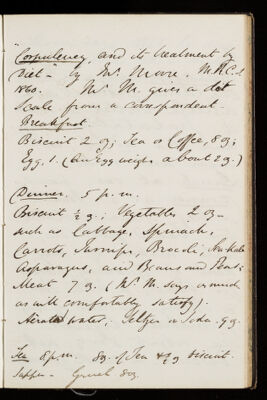 "Corpulency, and its treatment by
Diet" - by Mr. Moore. M.R.C.S
1860. Mr. M. gives a diet
Scale from a correspondent.
Breakfast.
Biscuit 2 oz; Tea or Coffee, 8 oz;
Egg, 1. (An Egg weighs about 2 oz.)
Dinner. 5 p.m.
Biscuit ½ oz; Vegetables 2 oz -
such as Cabbage, Spinach,
Carrots, Turnips, Brocoli,
Asparagus, and Beans and Peas;
Meat 7 oz. (Mr M. says as much
as will comfortably satisfy).
Aerated water; Seltzer or Soda. 9 oz.
Tea 8 p.m. 8 oz. of Tea & ½ oz biscuit.
Supper - Gruel 8 oz.